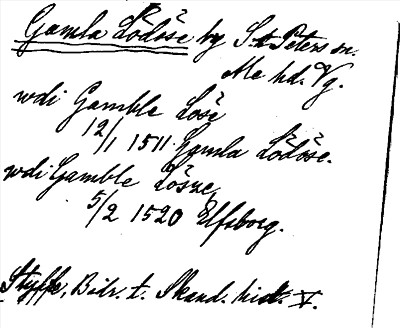 Gamla Lödöse by St Peters sn.
Ale hd. Vg.
wdi Gamble Lose
12/1 1511 Gamla Lödöse.
wdi Gamble Lösze
5/2 1520 Elfsborg.
Styffe, Bidr. t. Skand. hist. V.